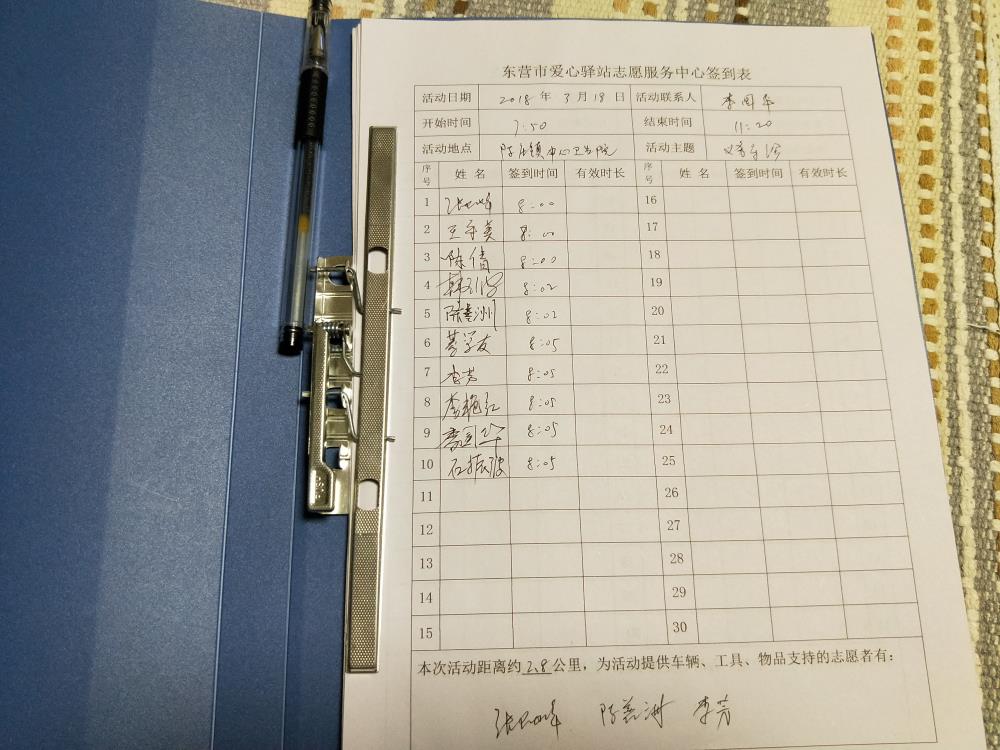 东营市爱心驿站志愿服务中心签到表
活动日期 2018 年 3 月 19 日 活动联系人 李国华
开始时间 7:50 结束时间 11:20
活动地点 陈庄镇中心卫生院 活动主题
序号 姓名 签到时间 有效时长 序号 姓名 签到时间 有效时长
1 8:00 16
2 王守美 8:00 17
3 陈倩 8:00 18
4 8:02 19
5 8:02 20
6 8:05 21
7 李芳 8:05 22
8 李艳红 8:05 23
9 李国华 8:05 24
10 石振波 8:05 25
11 26
12 27
13 28
14 29
15 30
本次活动距离约 2.8 公里，为活动提供车辆、工具、物品支持的志愿者有：
李芳